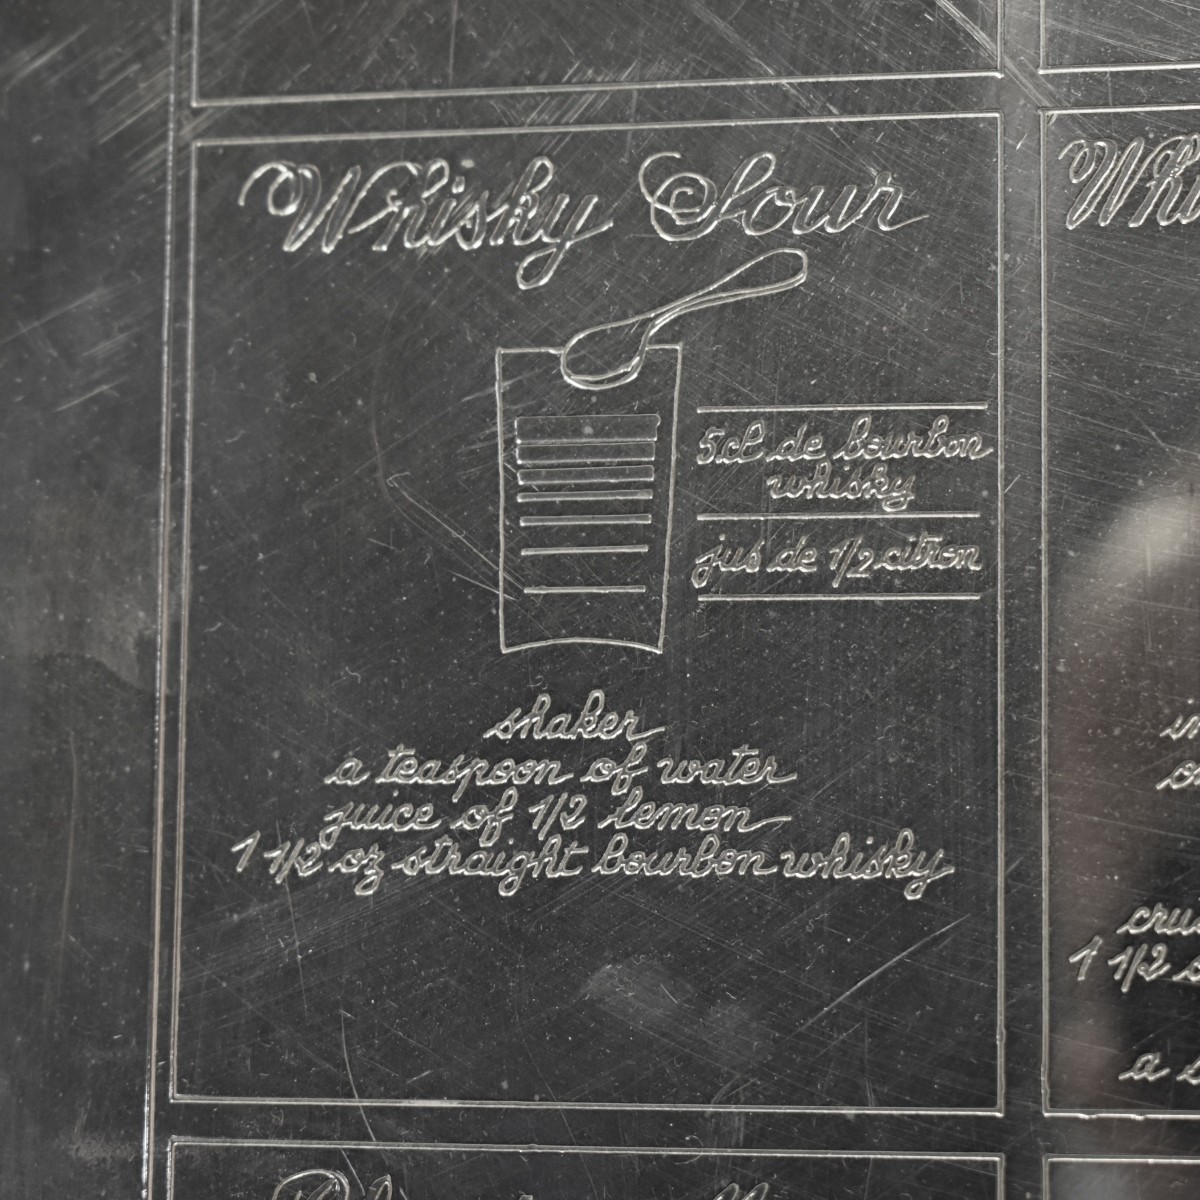 Whisky Sour
5cl de bourbon
whisky
jus de 1/2 citron
shaker
a teaspoon of water
juice of 1/2 lemon
1 1/2 oz straight bourbon whisky
1 1/2
a